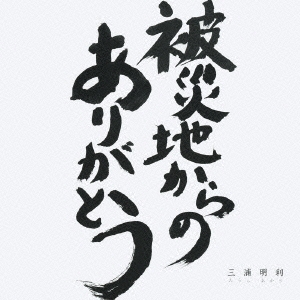 被災地からの
ありがとう
三浦明利